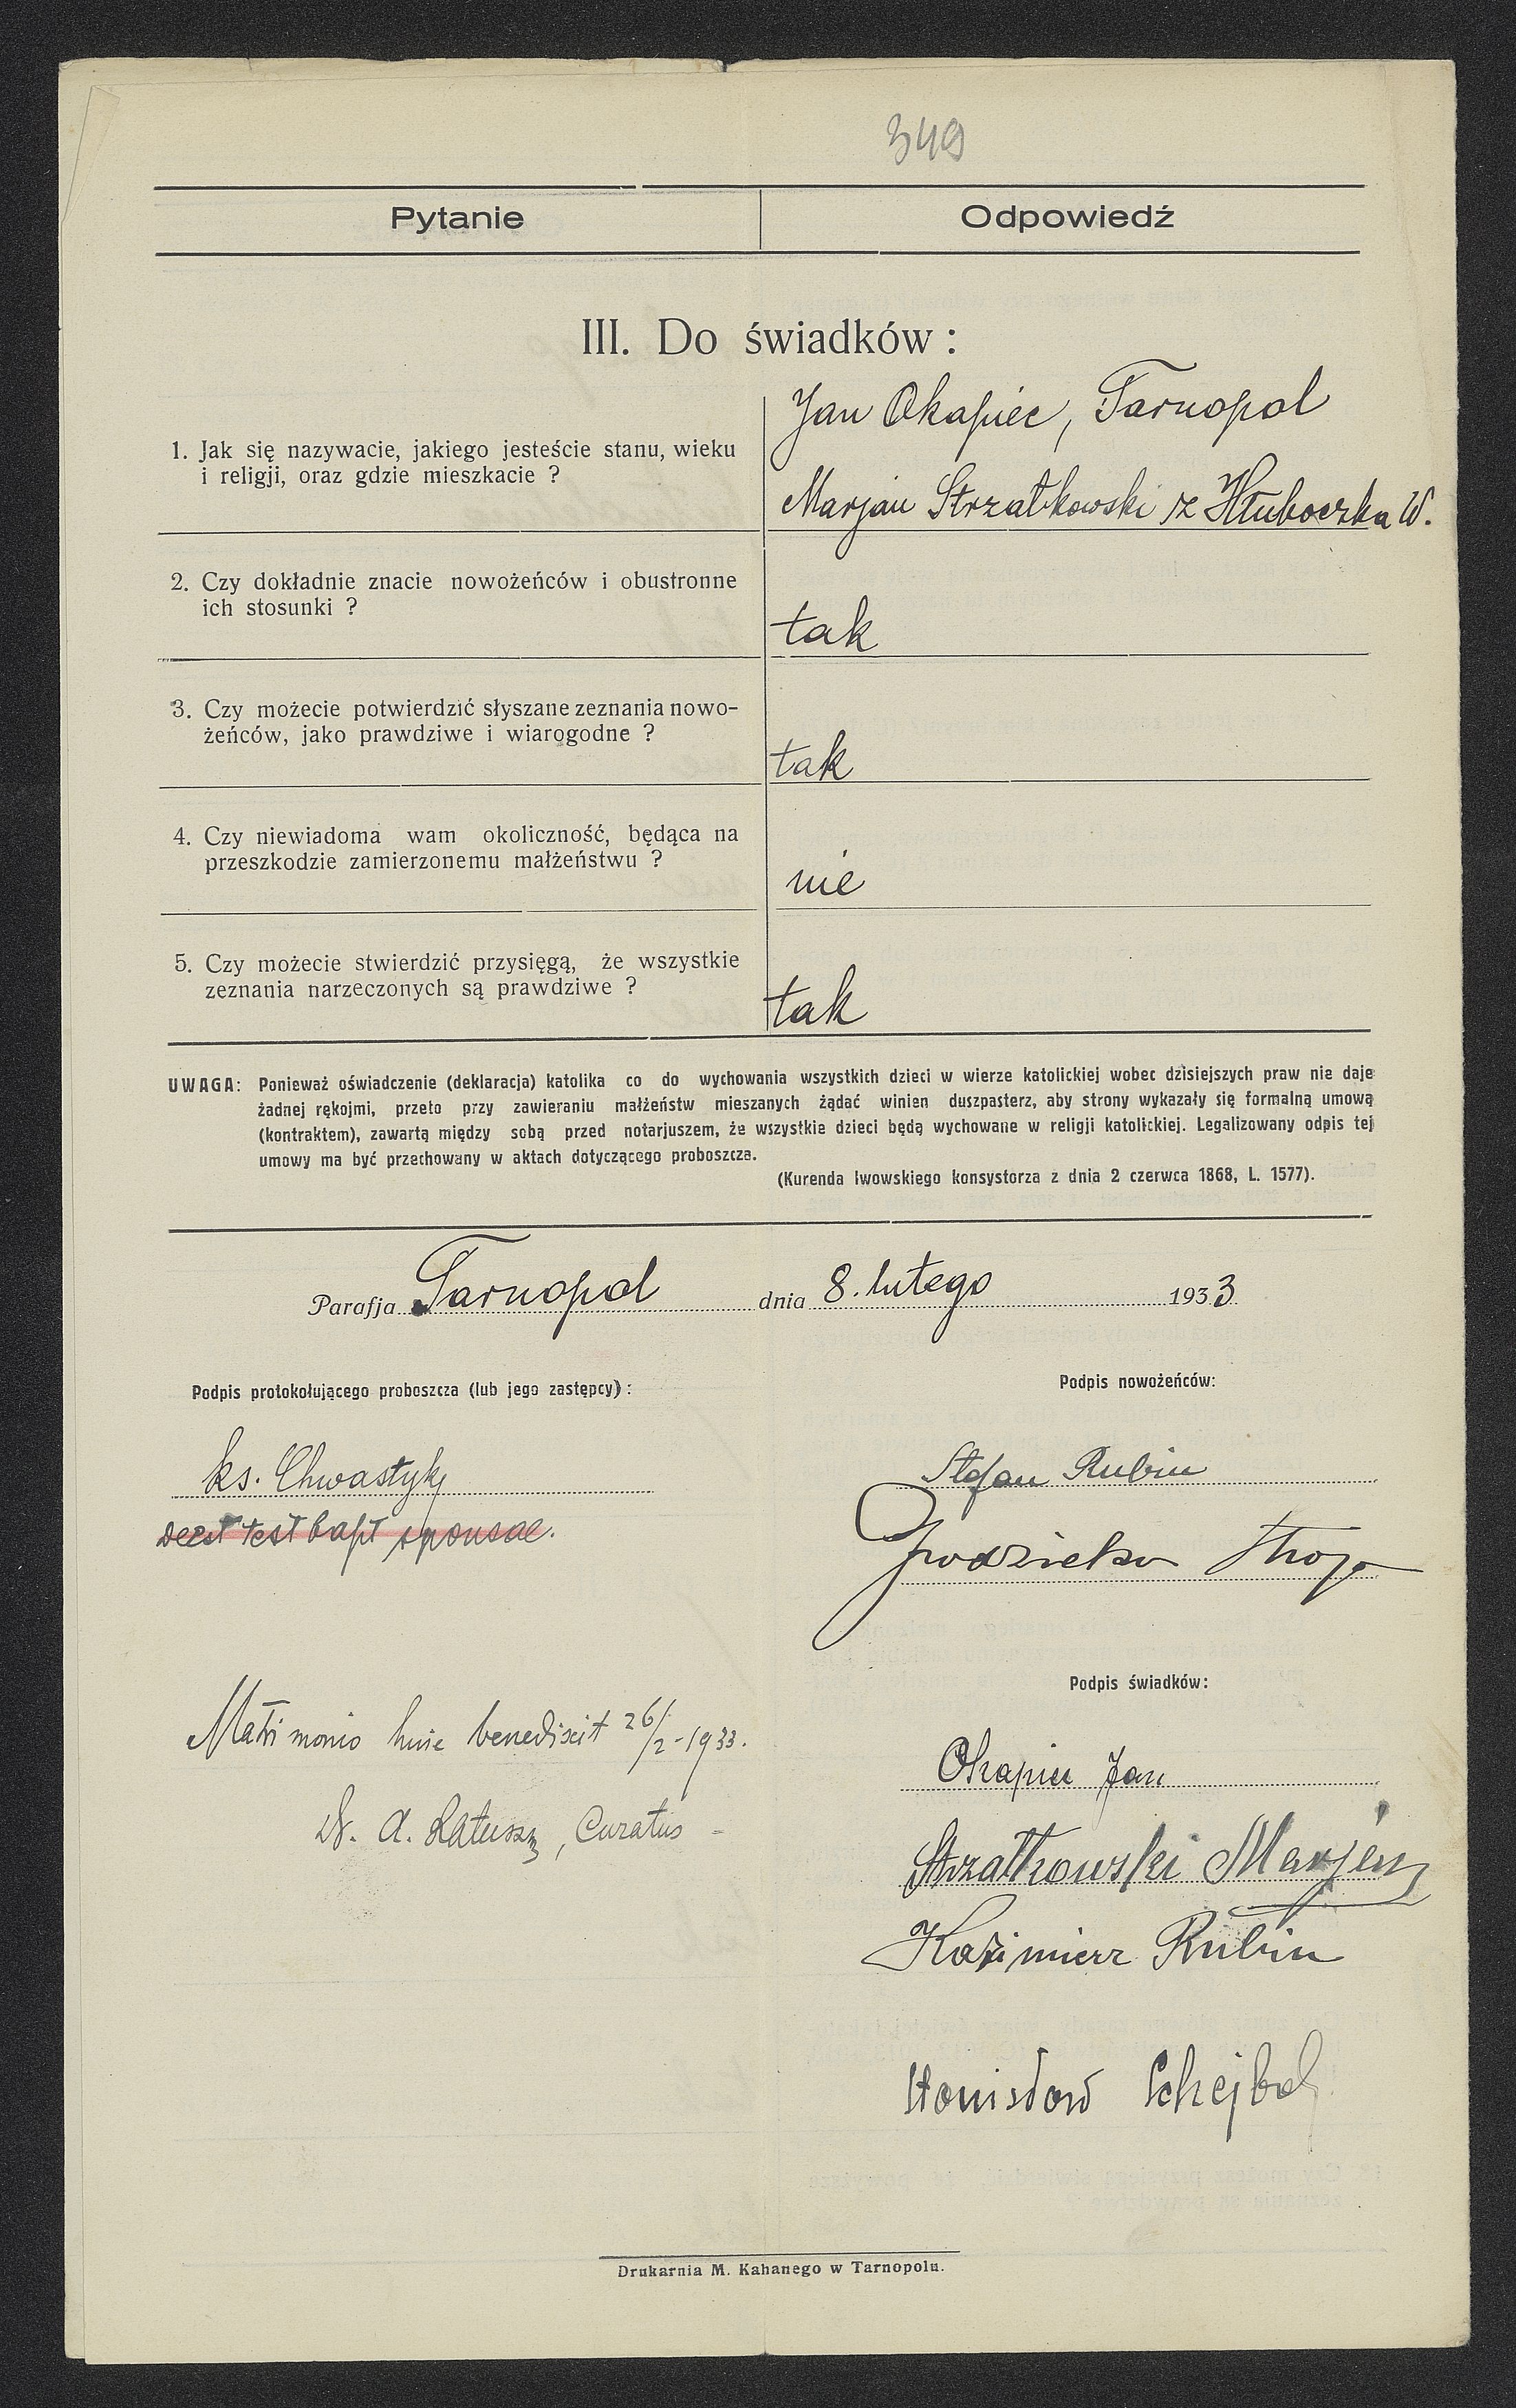 349
Pytanie
Odpowiedź
III. Do świadków :
1. Jak się nazywacie, jakiego jesteście stanu, wieku
i religji, oraz gdzie mieszkacie ?
Jan Okapiec, Tarnopol
Marjan Strzałkowski z Hłuboczka W.
2. Czy dokładnie znacie nowożeńców i obustronne
ich stosunki ?
tak
3. Czy możecie potwierdzić słyszane zeznania nowo-
żeńców, jako prawdziwe i wiarogodne ?
tak
4. Czy niewiadoma wam okoliczność, będąca na
przeszkodzie zamierzonemu małżeństwu ?
nie
5. Czy możecie stwierdzić przysięgą, że wszystkie
zeznania narzeczonych są prawdziwe ?
tak
UWAGA: Ponieważ oświadczenie (deklaracja) katolika co do wychowania wszystkich dzieci w wierze katolickiej wobec dzisiejszych praw nie daje
żadnej rękojmi, przeto przy zawieraniu małżeństw mieszanych żądać winien duszpasterz, aby strony wykazały się formalną umową
(kontraktem), zawartą między sobą przed notarjuszem, że wszystkie dzieci będą wychowane w religji katolickiej. Legalizowany odpis tej
umowy ma być przechowany w aktach dotyczącego proboszcza.
(Kurenda lwowskiego konsystorza z dnia 2 czerwca 1868, L. 1577).
Parafja Tarnopol dnia 8. lutego 1933
Podpis protokołującego proboszcza (lub jego zastępcy) :
ks. Chwastyk
deest test bapt sponsae.
Podpis nowożeńców:
Stefan Rubin
Matrimonio huic benedixit 26/2-1933.
Dr. A. Ratuszn, Curatus
Podpis świadków:
Okapiec Jan
Strzałkowski Marjan
Kazimierz Rubin
Stanisław Schejbal
Drukarnia M. Kahanego w Tarnopolu.